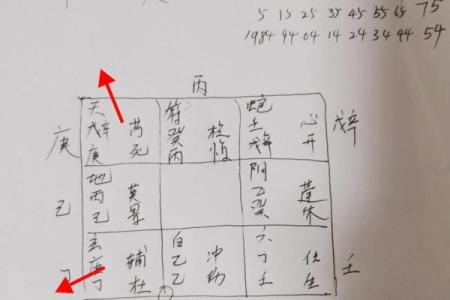 5 15 25 35 45 55 65 75
1984 94 04 14 24 34 44 54
丙
庚
天 芮
戊辛 死
庚
符 柱
癸 惊
丙
蛇 心
壬 开
戊辛
戊辛
己
地 英
丙 景
己
阴 蓬
乙 休
癸
玄 辅
杜
丁
白 冲
己
乙
六 任
丁 生
壬
壬